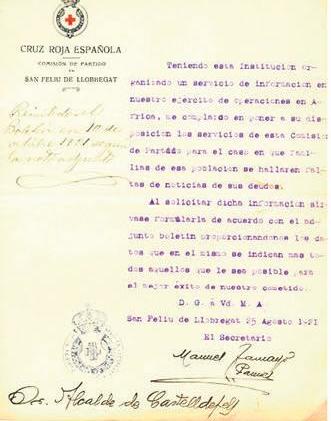 CRUZ ROJA ESPAÑOLA
COMISIÓN DE PARTIDO
DE
SAN FELIU DE LLOBREGAT
Teniendo esta Institución or-
ganizado un servicio de informacion en
nuestro ejercito de operaciones en A-
frica, me complazco en poner a su dis-
posición los servicios de esta Comisión
de Partido para el caso en que fami-
lias de esa poblacion se hallaren fal-
tas de noticias de sus deudos.
Al solicitar dicha informacion sir-
vase formularla de acuerdo con el ad-
junto boletin proporcionandonos los da-
tos que en el mismo se indican mas to-
dos aquellos que le sea posible para
el mejor éxito de nuestro cometido.
D. G. a Vd. M. A.
San Feliu de Llobregat 25 Agosto 1921
El Secretario
Manuel Tamayo
Sr. Alcalde de Castelldefels